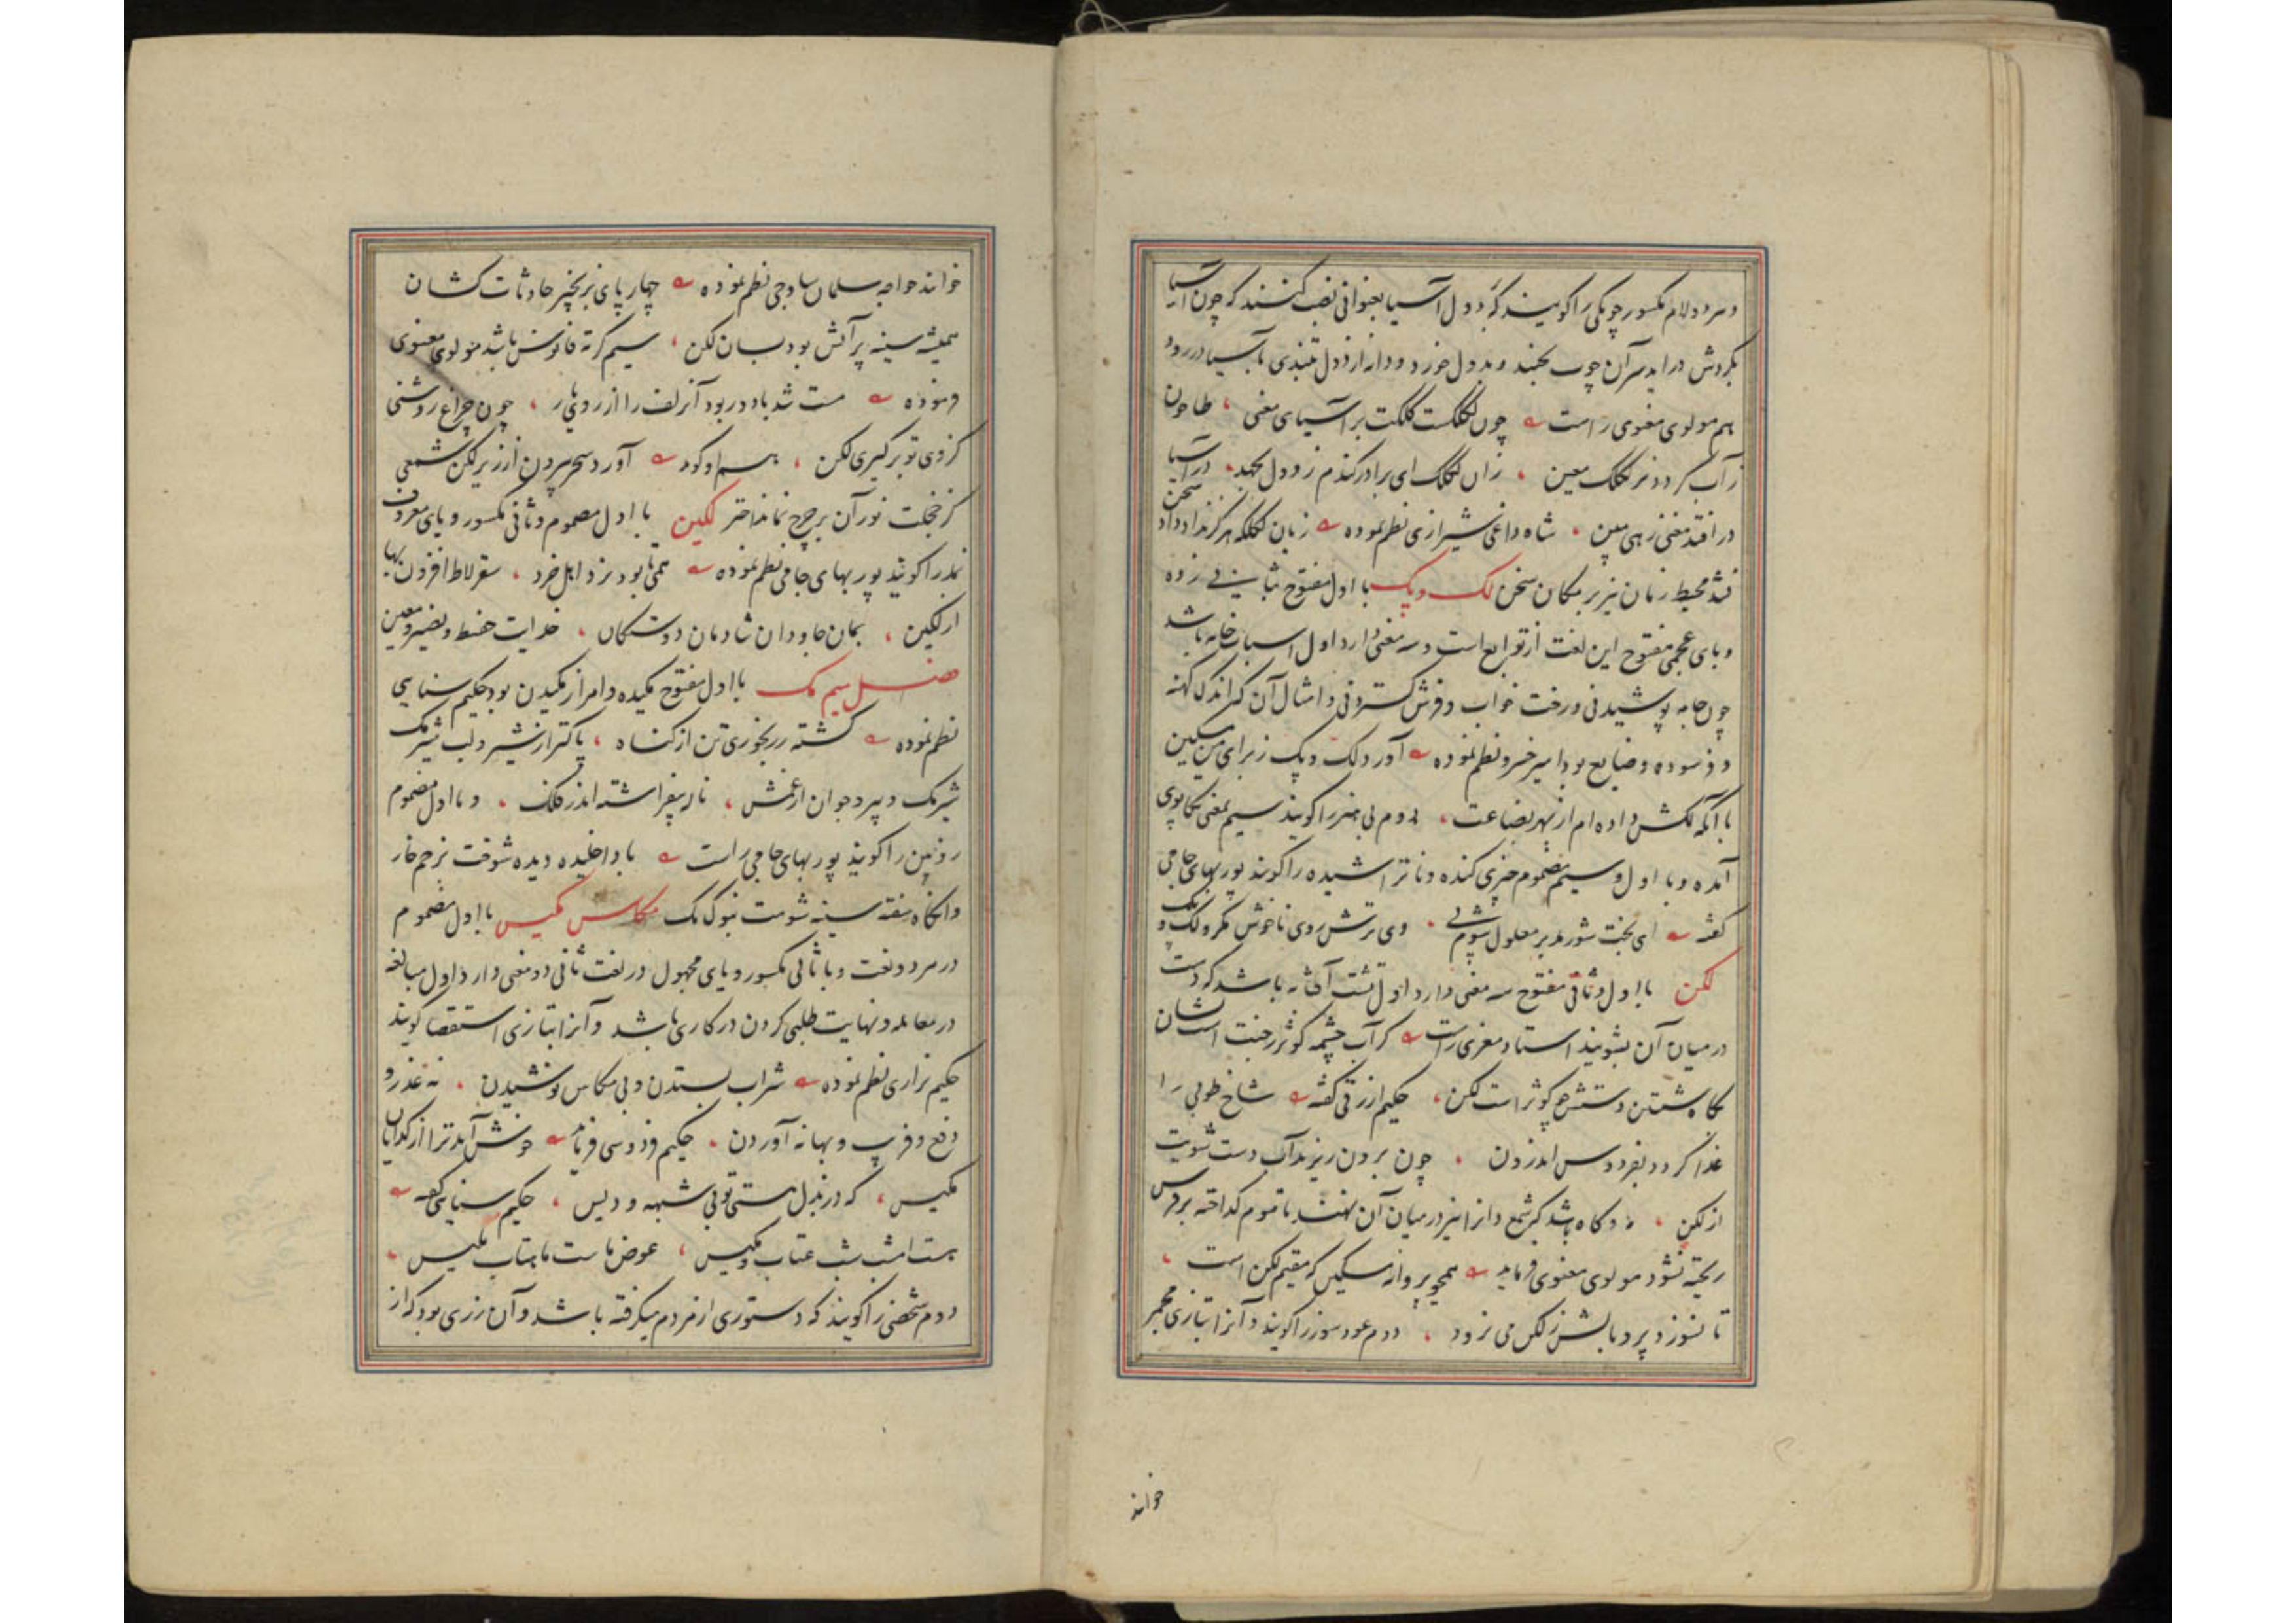 و سر دو لام مکسور چوبکی را گویند که بر دول آسیا بعنوانی نصب کنند که چون آسیا
بگردش درآید سر آن چوب بجنبد و بدول خورد و دانه از دول بتندی بآسیا در رود
هم مولوی معنوی راست چون لکلکست کلکت بر آسیای معنی طاحون
ز آب گردد نز لکلک معین زان لکلک ای برادر گندم ز دول بجهد در آسیا
در افتد معنی زهی مبین شاه داعی شیرازی نظم نموده زبان لکلکه هرگز نداد داد سخن
محیط زمان نیز بر مکان سخن لک و پک با اول مفتوح بثانی زده
و بای عجمی مفتوح این لغت از توابع است و سه معنی دارد اول اسباب خانه باشد
چون جامه پوشیدنی و رخت خواب و فرش گستردنی و امثال آن که اندک کهنه
و فرسوده و ضایع بود امیر خسرو نظم نموده آورد لک و پک ز برای من مسکین
با آنکه لکش داده ام از بهر بضاعت دوم بی هنر را گویند سیم بمعنی تکاپوی
آمده و با اول و سیم مضموم چیزی کنده و ناتراشیده را گویند پوربهای جامی
گفته ای بخت شور مدبر معلول شوم پی وی ترش روی ناخوش مکروه لک و پک
لکن با اول و ثانی مفتوح سه معنی دارد اول تشت آتشانه باشد که دست
در میان آن بشویند استاد معزی راست گر آب چشمه کوثر ز جنت است نشان
بگاه شستن دستش چو کوثر است لکن حکیم ازرقی گفته شاخ طوبی را
غذا گردد بفردوس اندرون چون برون ریزند آب دست شویت
از لکن دوم گاه باشد که شمع دانرا نیز در میان آن نهند تا موم گداخته بر فرش
ریخته نشود مولوی معنوی فرماید همچو پروانه مسکین که مقیم لکن است
تا نسوزد پر و بالش ز لکن می نرود دوم عود سوز را گویند و آنرا بتازی مجمر
خوانند
خوانند خواجه سلمان ساوجی نظم نموده چهار پای بزنجیر حادثات کشان
همیشه سینه پر آتش بود بسان لکن سیم کرته فانوس باشد مولوی معنوی
فرموده مست شد باد و ربود آنزلف را از روی یار چون چراغ روشنی
کز وی تو برگیری لکن هم او گوید آورد سحر بیرون از زیر لکن شمعی
کز خجلت نور آن بر چرخ نماند اختر لکین با اول مضموم و ثانی مکسور و یای معروف
نمد را گویند پوربهای جامی نظم نموده تا بود نزد اهل خرد سقرلاط افزون بها
از لکین بمان جاودان شادمان دوستکان خدایت حفیظ و نصیر و معین
فصل میم مک با اول مفتوح مکیده و امر از مکیدن بود حکیم سنایی
نظم نموده گشته رنجوری تن از گناه پاکتر از شیر و لب شیر مک
شیر مک و پیر و جوان از غمش ناله بیفراشته اندر فلک و با اول مضموم
روبین را گویند پوربهای جامی راست بادا خلیده دیده شوخت بزخم خار
وانگاه سفته سینه شومت بنوک مک مکاس مکیس با اول مضموم
در سر دو لغت و با ثانی مکسور و یای مجهول در لغت ثانی دو معنی دارد اول مبالغه
در معامله و نهایت طلبی کردن در کاری باشد و آنرا بتازی استقصا گویند
حکیم نزاری نظم نموده شراب بستدن و بی مکاس نوشیدن نه عذر و
دفع و فریب و بهانه آوردن حکیم فردوسی فرماید خوش آید ترا از گدایان
مکیس که در بذل هستی تو بی شبهه و دیس حکیم سنایی گفته
هست امشب شب عتاب و مکیس عوض ماست ماهتاب مکیس
دوم شخصی را گویند که دستوری از مردم میگرفته باشد و آن رزی بود که از